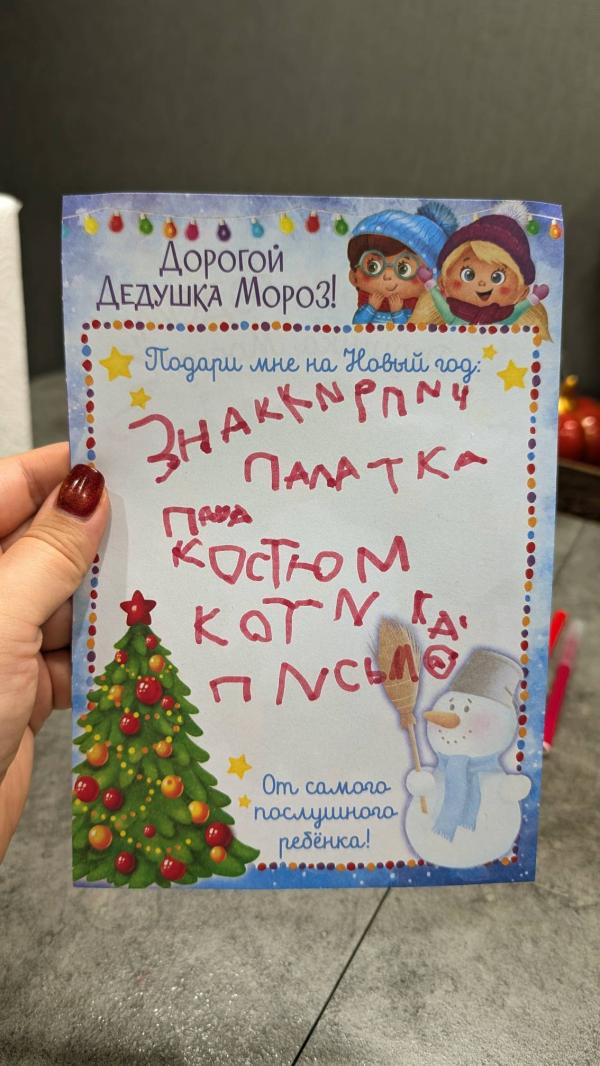 ДОРОГОЙ
ДЕДУШКА МОРОЗ!
Подари мне на Новый год:
ЗНАККИРПИЧ
ПАЛАТКА
КОСТЮМ
КОТИКА
ПИСЬМО
От самого
послушного
ребёнка!